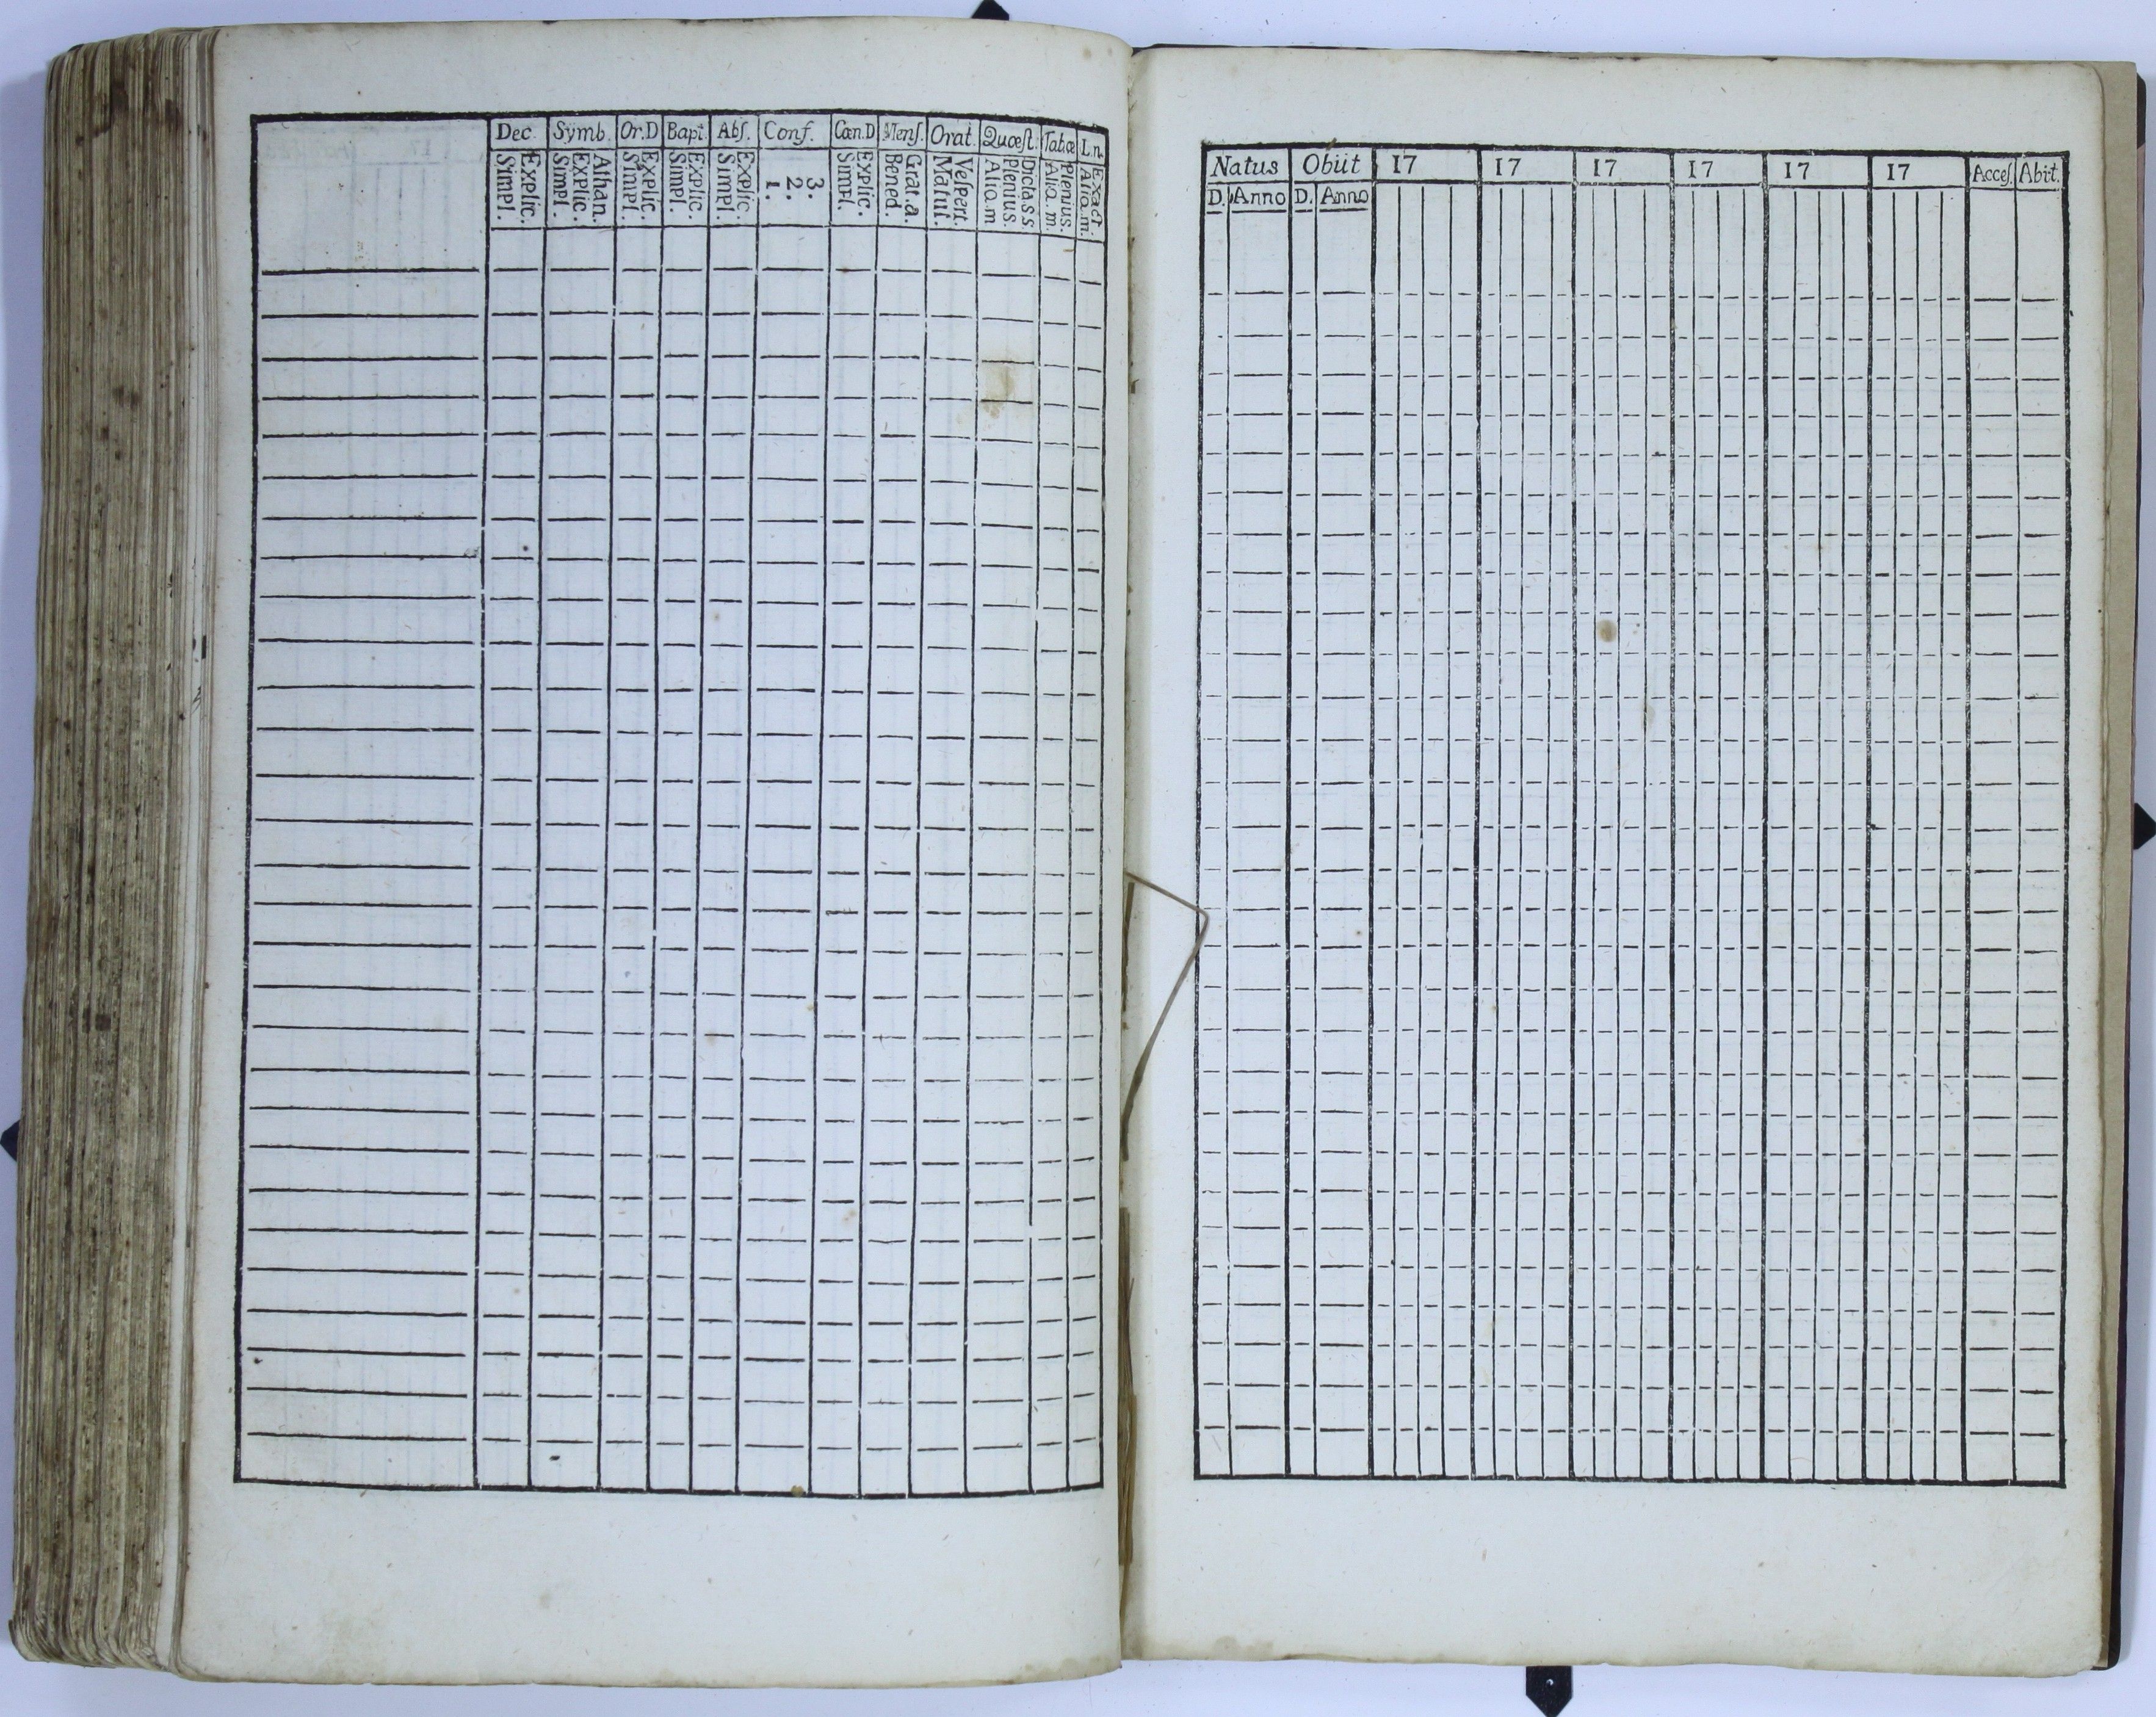 Dec. Symb. Or.D Bapt. Abſ. Conf. Cœn.D Menſ. Orat. Quœſt. Tabœ L.n.
Explic.
Simpl.
Athan.
Explic.
Simpl.
Explic.
Simpl.
Explic.
Simpl.
Explic.
Simpl.
3.
2.
1.
Explic.
Simpl.
Grat.a.
Bened.
Veſpert.
Matut.
Dicta.s s
Plenius.
Aliq.m
Plenius.
Aliq.m.
Exact.
Aliq.m.
Natus Obiit 17 17 17 17 17 17 Acceſ. Abit.
D. Anno D. Anno